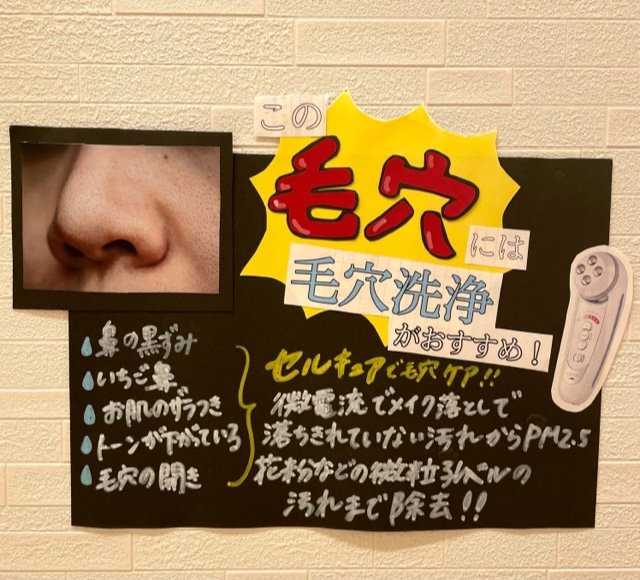 この
毛穴
には
毛穴洗浄
がおすすめ！
鼻の黒ずみ
いちご鼻
お肌のザラつき
トーンが下がっている
毛穴の開き
セルキュアで毛穴ケア!!
微電流でメイク落としで
落ちきれていない汚れからPM2.5
花粉などの微粒子レベルの
汚れまで除去!!